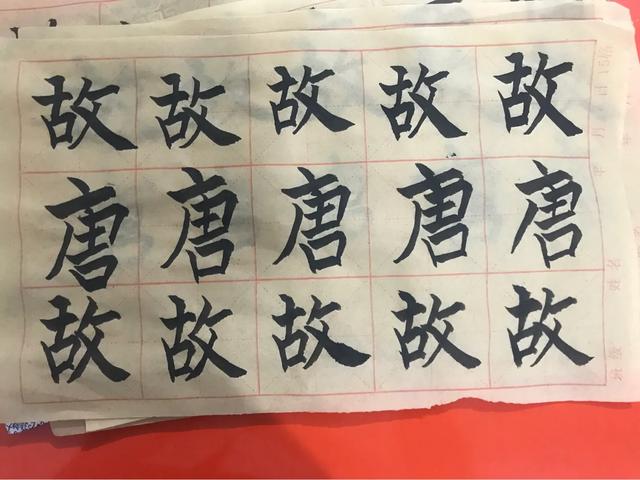 故故故故故
唐唐唐唐唐
故故故故故